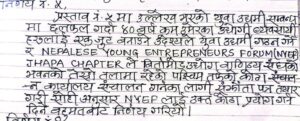 निर्णय नं. ४,
प्रस्ताव नं. ४ मा उल्लेख भएको युवा उद्यमी सम्बन्ध
मा छलफल गर्दा ४० वर्ष कम उमेरका उद्योगी व्यवसायी
हरूलाई एक जुट बनाउने उद्देश्यले युवा उद्यमी गठन गर्न
र NEPALESE YOUNG ENTREPRENEURS FORUM (NYEF)
JHAPA CHAPTER ले बिर्तामोड उद्योग वाणिज्य संघको
भवनको तेस्रो तलामा रहेको पश्चिम तर्फको कोठा संचाल
न कार्यालय संचालन गर्नको लागी सम्झौता पत्र तयार
गरी सोही अनुसार NYEF लाई उक्त कोठा प्रयोग गर्न
दिने बहुमतबाट निर्णय गरियो।